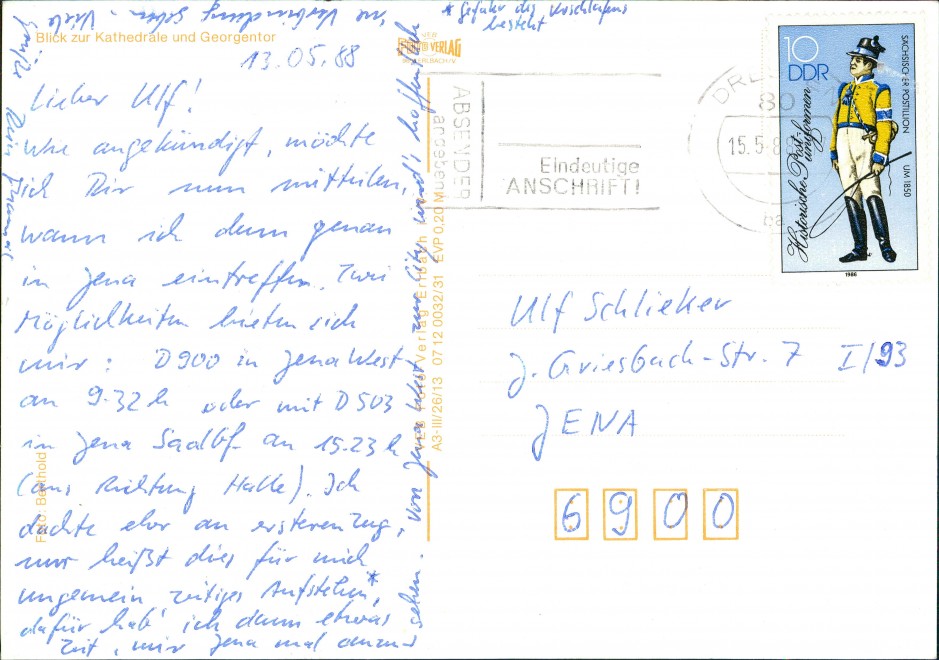 Blick zur Kathedrale und Georgentor
13.05.88
Lieber Ulf!
Wie angekündigt, möchte
ich Dir nun mitteilen,
wann ich denn genau
in Jena eintreffen. Zwei
Möglichkeiten bieten sich
mir: D900 in Jena West
an 9.32 h oder mit D503
in Jena Saalbf an 15.23 h
(aus Richtung Halle). Ich
dachte eher an ersteren Zug,
nur heißt dies für mich
ungemein zeitiges Aufstehen*,
dafür hab' ich dann etwas
Zeit, mir Jena mal anzu-
sehen. Von Jena West zur City wird's hoffentlich
ne Verbindung geben. Viele
Grüße
Dein
* Gefahr des Verschlafens
besteht
Foto: Berthold
VEB
VERLAG
VEB Foto-Verlag Erlbach
A3-III/26/13 07 12 0032/31 EVP 0,20 M
ABSENDER
angeben
Eindeutige
ANSCHRIFT!
15.5.8
10
DDR
Historische Post-
uniformen
SÄCHSISCHER POSTILLION
UM 1850
1986
Ulf Schlieker
J. Griesbach-Str. 7 I/93
JENA
6900